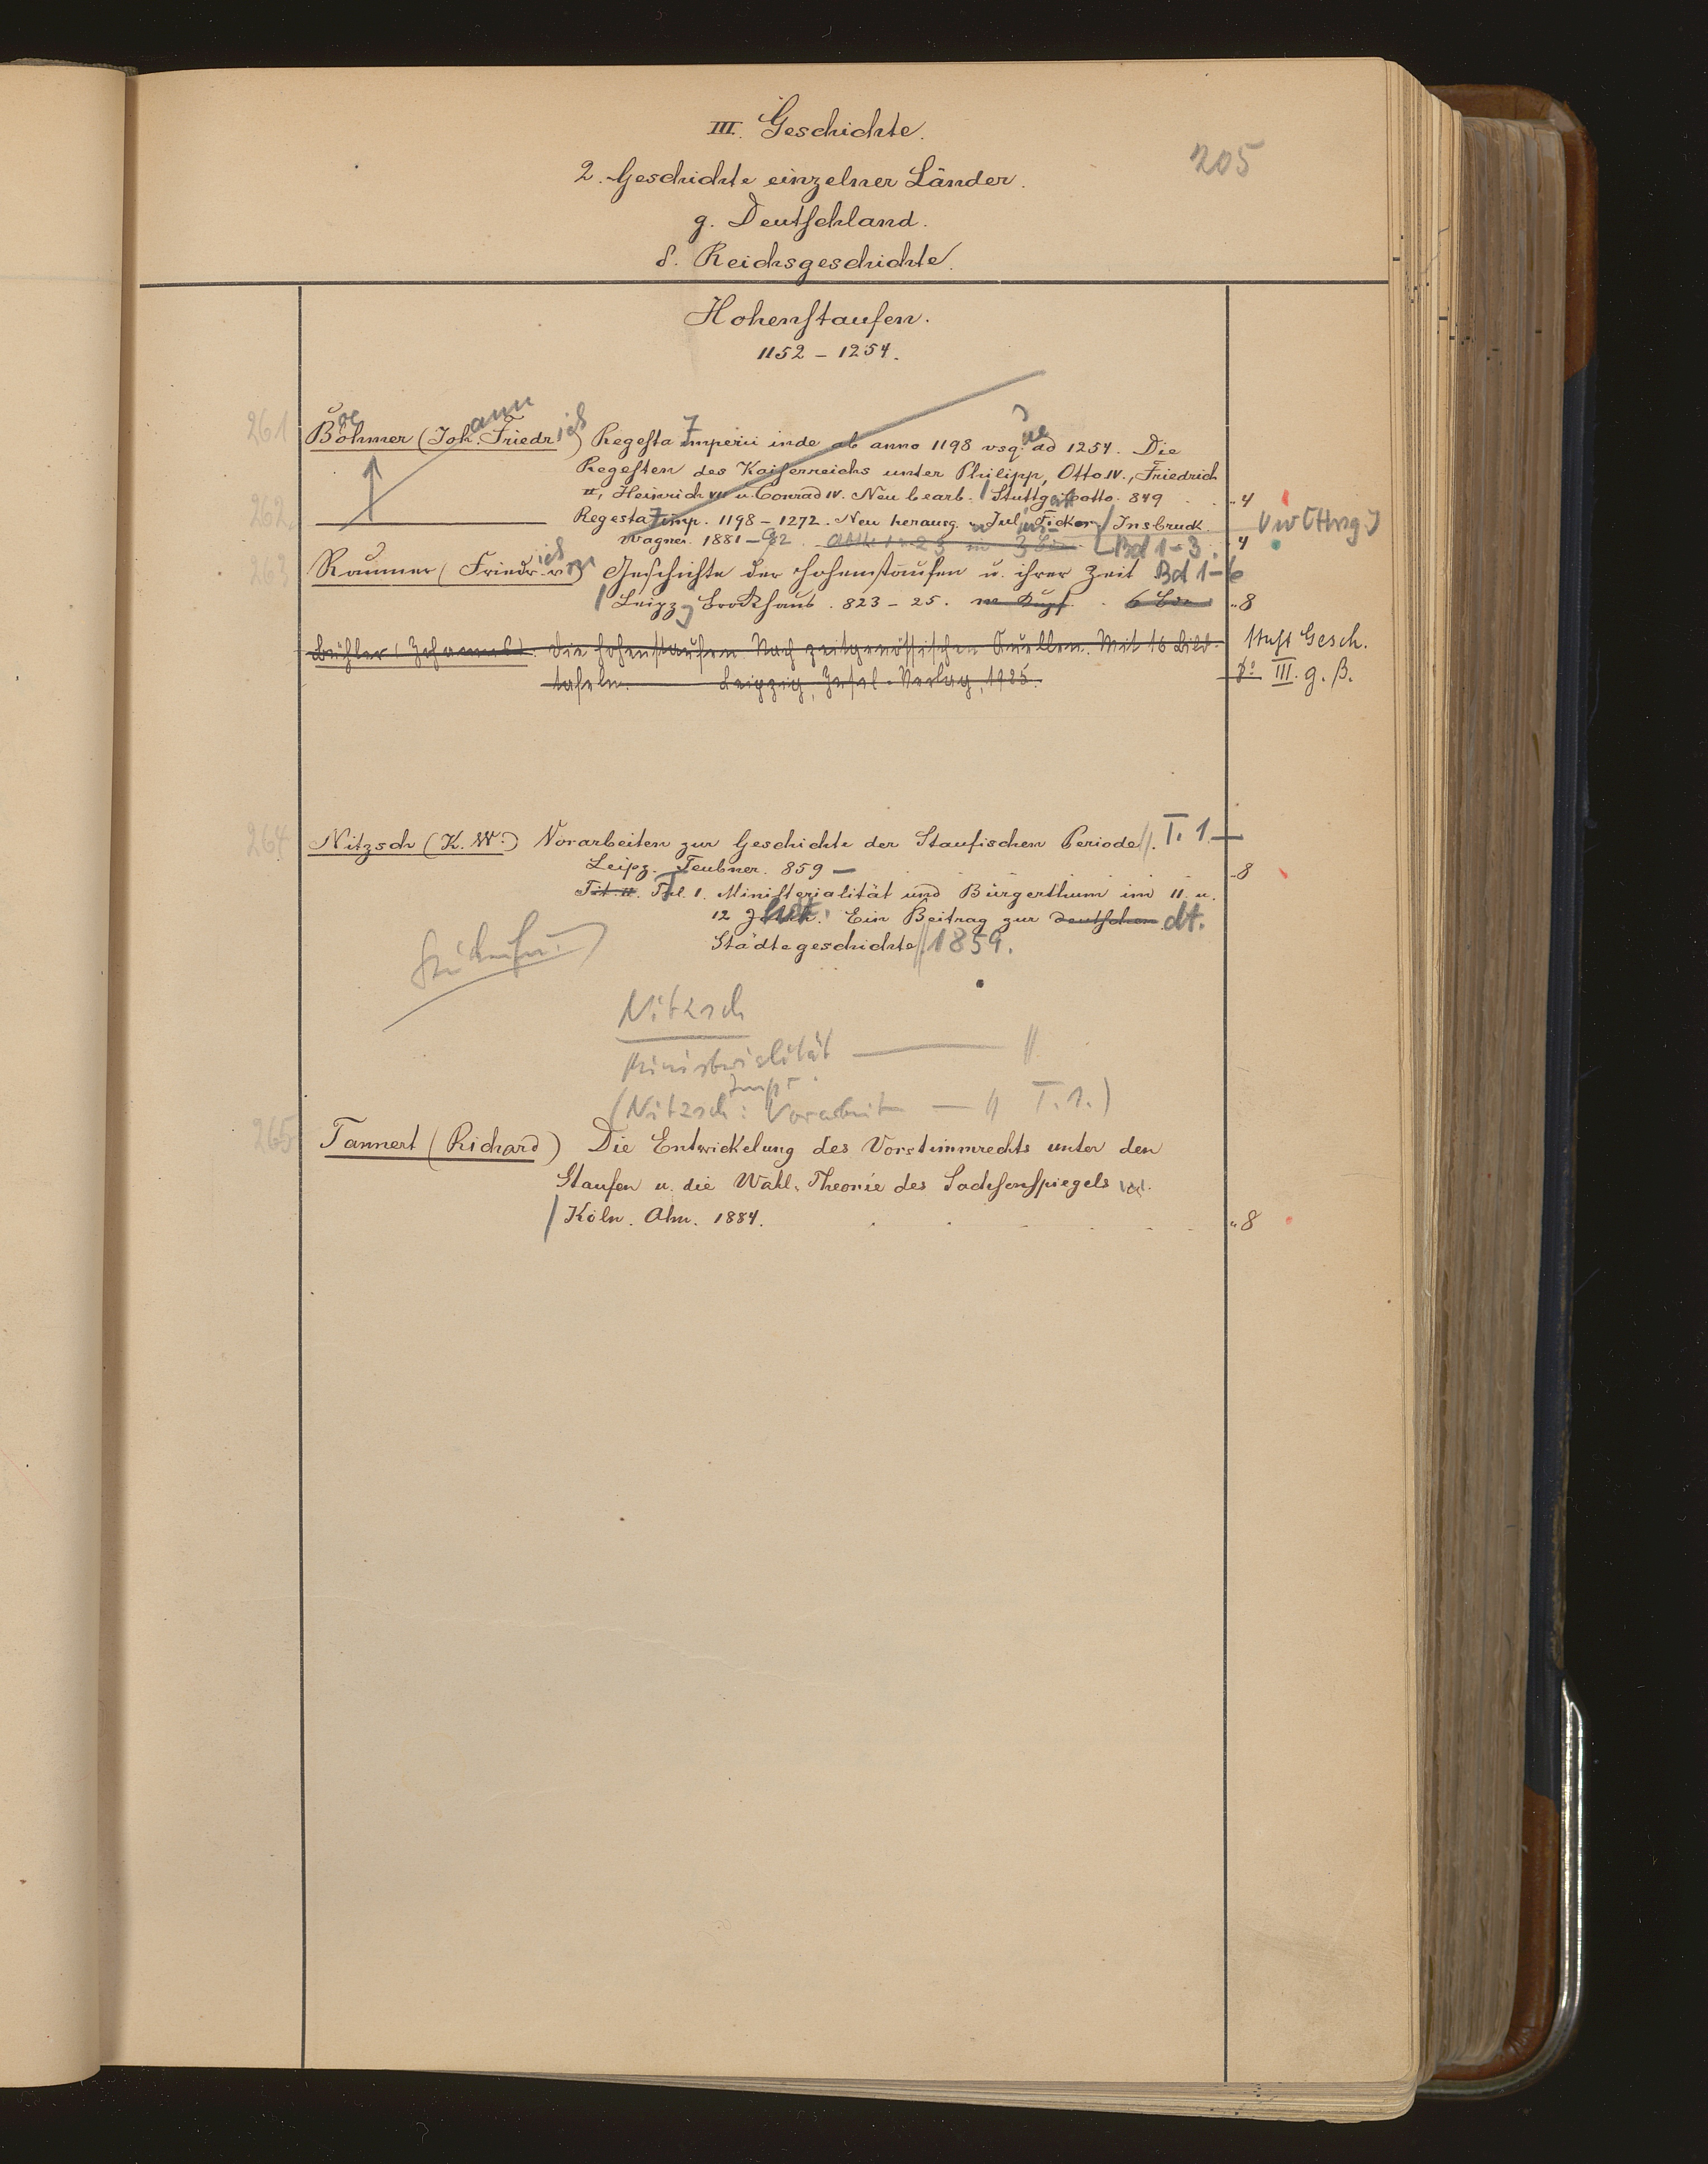 205
III. Geschichte.
2. Geschichte einzelner Länder.
g. Deutschland.
δ. Reichsgeschichte.
Hohenstaufen.
1152 – 1254.
261 Böhmer (Joh. Friedrich) Regesta Imperii inde ab anno 1198 usque ad 1254. Die
Regesten des Kaiserreichs unter Philipp, Otto IV., Friedrich
II, Heinrich VII u. Conrad IV. Neu bearb. / Stuttgart Cotta. 849 . „ 4
262 Regesta Imp. 1198 – 1272. Neu herausg. v. Julius Ficker / Insbruck
Wagner. 1881 – 82. Bd 1-3. 4
263 Raumer (Friedrich v.) Geschichte der Hohenstaufen u. ihrer Zeit Bd 1-6
/ Leipzg Brockhaus. 823 – 25. m Kupf. 6 Bde „ 8
Bühler (Johannes). Die Hohenstaufen. Nach zeitgenössischen Quellen. Mit 16 Bild-
tafeln. Leipzig, Insel-Verlag, 1925.
Gesch.
8° III. g. β.
264 Nitzsch (K. W.) Vorarbeiten zur Geschichte der Staufischen Periode //. T. 1.
Leipz. Teubner. 859 – „ 8
Tit. II. Thl 1. Ministerialität und Bürgerthum im 11. u.
12 Jhdt. Ein Beitrag zur deutschen dt.
Städtegeschichte // 1859.
Nitzsch
Ministerialität — //
(Nitzsch: Vorarbeit — // T. 1.)
265 Tannert (Richard) Die Entwickelung des Vorstimmrechts unter den
Staufen u. die Wahl-Theorie des Sachsenspiegels
/ Köln. Ahn. 1884. „ 8